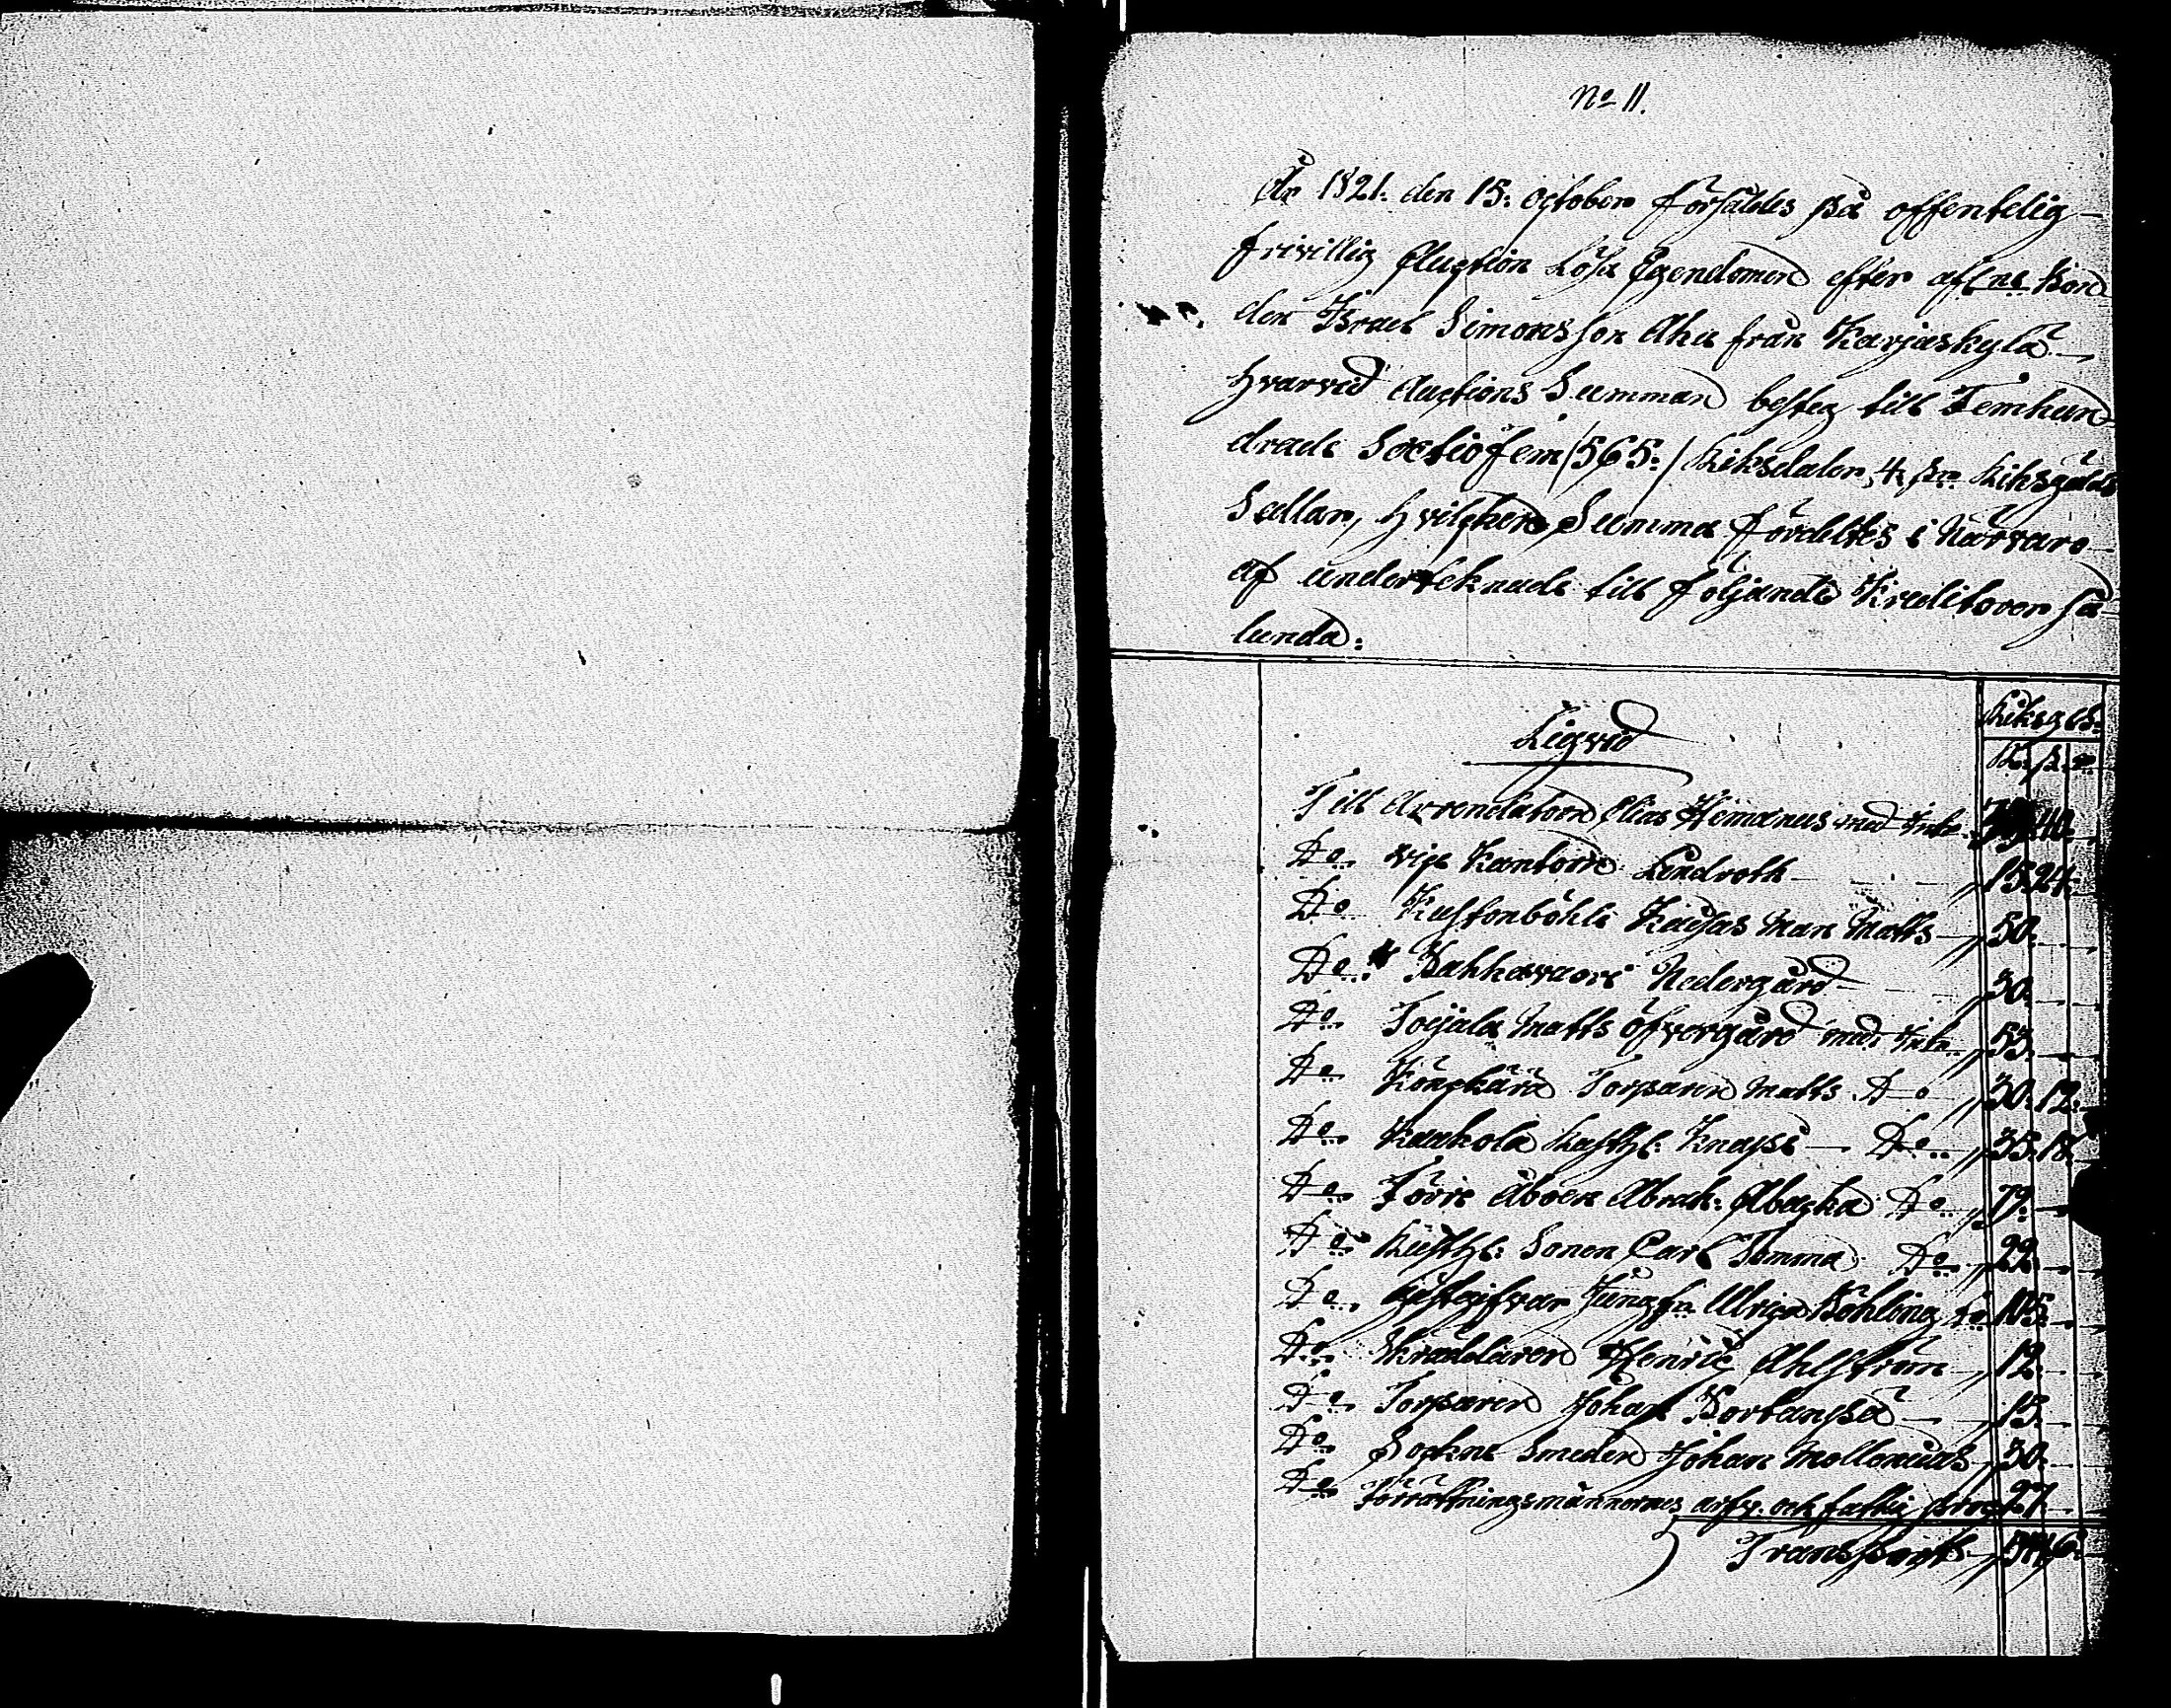 No 11.
År 1821. den 15. October försåldes på offentelig
frivillig Auction Lösa Egendomen efter aflne Bon
den Israel Simonsson Aha från Karjaskylä
hvarvid Auctions Summan besteg till Femhun
drade Sextiofem /565:/ Riksdaler, 4 sk: Riksgälds
Sedlar, hvilken Summa fördeltes i Närvaro
af undertecknade till följande Kreditorer så
lunda:
Liqvid
Riksg ls.
R. sk. r.
Till Arrendatorn Elias Hemanus med Intr. 40.
Do vice Kantorn Lindroth 15.24.
Do Kustonböhle Kaisas Man Matts 50.
Do Bahkavuori Nedergård 30.
Do Toijala Matts Öfvergård med Intr. 53.
Do Torparn Matts Do 30.12.
Do Kaukola Rusth: Knapsi Do 35.18.
Do Förre Åboen Abrah: Abacka Do 79.
Do Rusth: Sonen Carl Tomma Do 22.
Do Gästgifvar Jungfn Ulrica Böhling Do 105.
Do Skräddaren Henric Ahlström 12.
Do Torparen Johan 15.
Do Sockne Smeden Johan Mollonius 30.
Do Förrättningsmännernes arfv. och fattig proc. 27.
Transport